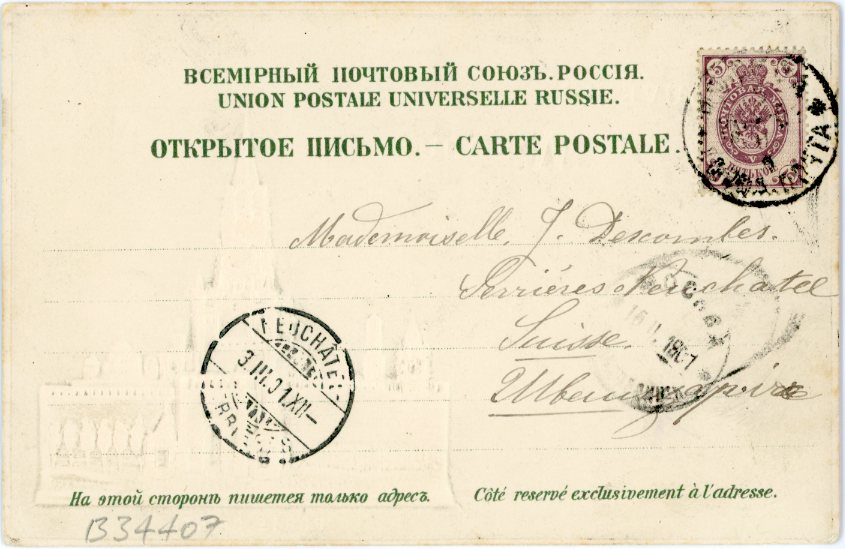 ВСЕМІРНЫЙ ПОЧТОВЫЙ СОЮЗЪ. РОССІЯ.
UNION POSTALE UNIVERSELLE RUSSIE.
ОТКРЫТОЕ ПИСЬМО. — CARTE POSTALE.
5
Mademoiselle. J. Descombes.
Serriéres Neuchatel
Suisse.
Швейцарія
МОСКВА
1901
NEUCHÂTEL
3.III.01.XII—
ПОЧТА
На этой сторонѣ пишется только адресъ.
Côté reservé exclusivement à l'adresse.
B34407